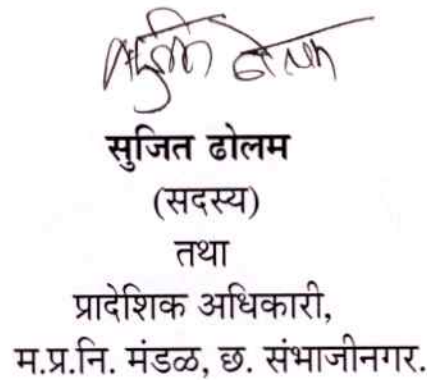 सुजित ढोलम
(सदस्य)
तथा
प्रादेशिक अधिकारी,
म.प्र.नि. मंडळ, छ. संभाजीनगर.